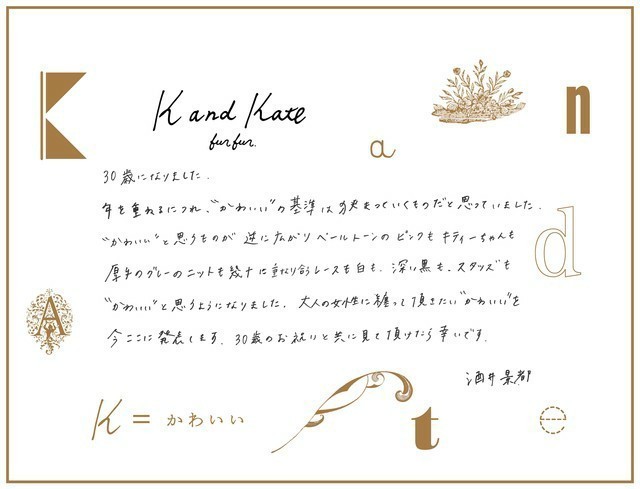 K and Kate
fur fur.
K
a
n
30歳になりました.
年を重ねるにつれ、"かわいい"の基準は狭まっていくものだと思っていました.
"かわいい"と思うものが逆に広がりペールトーンのピンクもキティーちゃんも
d
厚手のグレーのニットも幾十に重なり合うレースも白も、深い黒も、スタッズも
"かわいい"と思うようになりました. 大人の女性に纏って頂きたい"かわいい"を
A
今ここに発表します. 30歳のお祝いと共に見て頂けたら幸いです.
酒井景都
K = かわいい
t
e